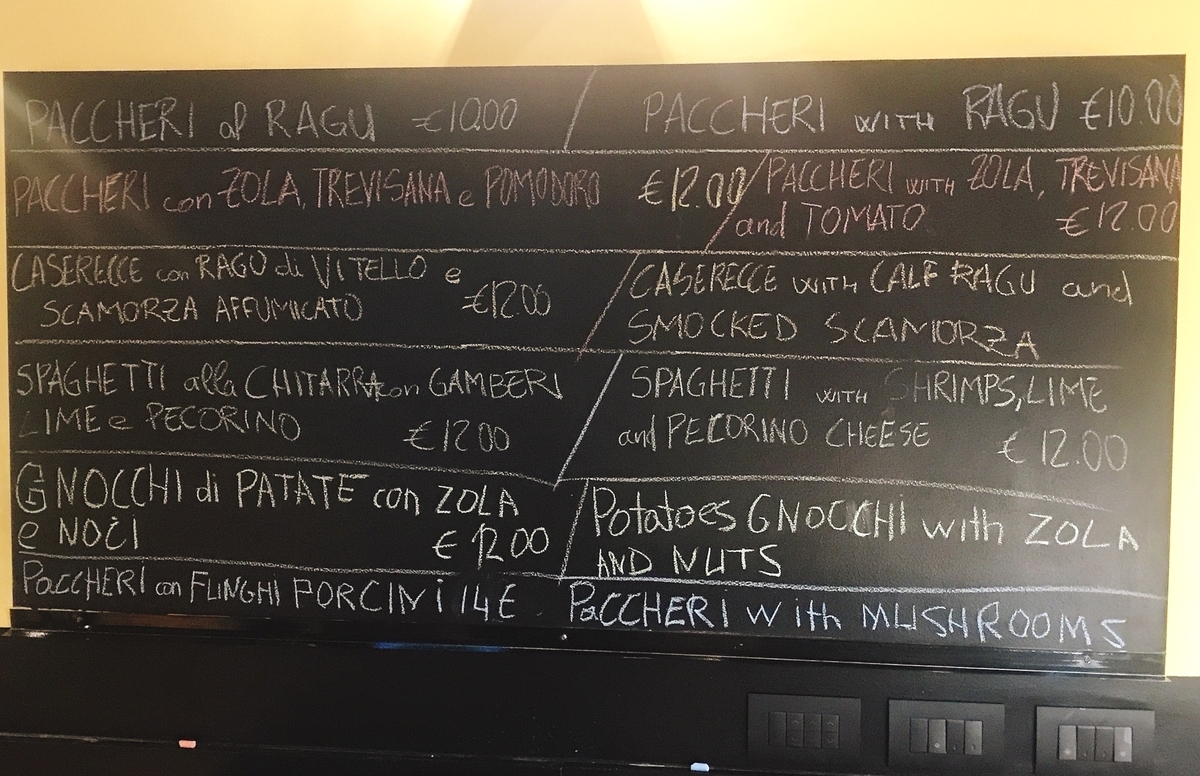 PACCHERI al RAGU €10.00 / PACCHERI WITH RAGU €10.00
PACCHERI con ZOLA, TREVISANA e POMODORO €12.00 / PACCHERI WITH ZOLA, TREVISANA
and TOMATO €12.00
CASERECCE con RAGU di VITELLO e
SCAMORZA AFFUMICATO €12.00
CASERECCE WITH CALF RAGU and
SMOCKED SCAMORZA
SPAGHETTI alla CHITARRA con GAMBERI
LIME e PECORINO €12.00
SPAGHETTI WITH SHRIMPS, LIME
and PECORINO CHEESE € 12.00
GNOCCHI di PATATE con ZOLA
e NOCI € 12.00
Potatoes GNOCCHI with ZOLA
AND NUTS
PaCCHERI con FUNGHI PORCINI 14€ PaCCHERI With MUSHROOMS